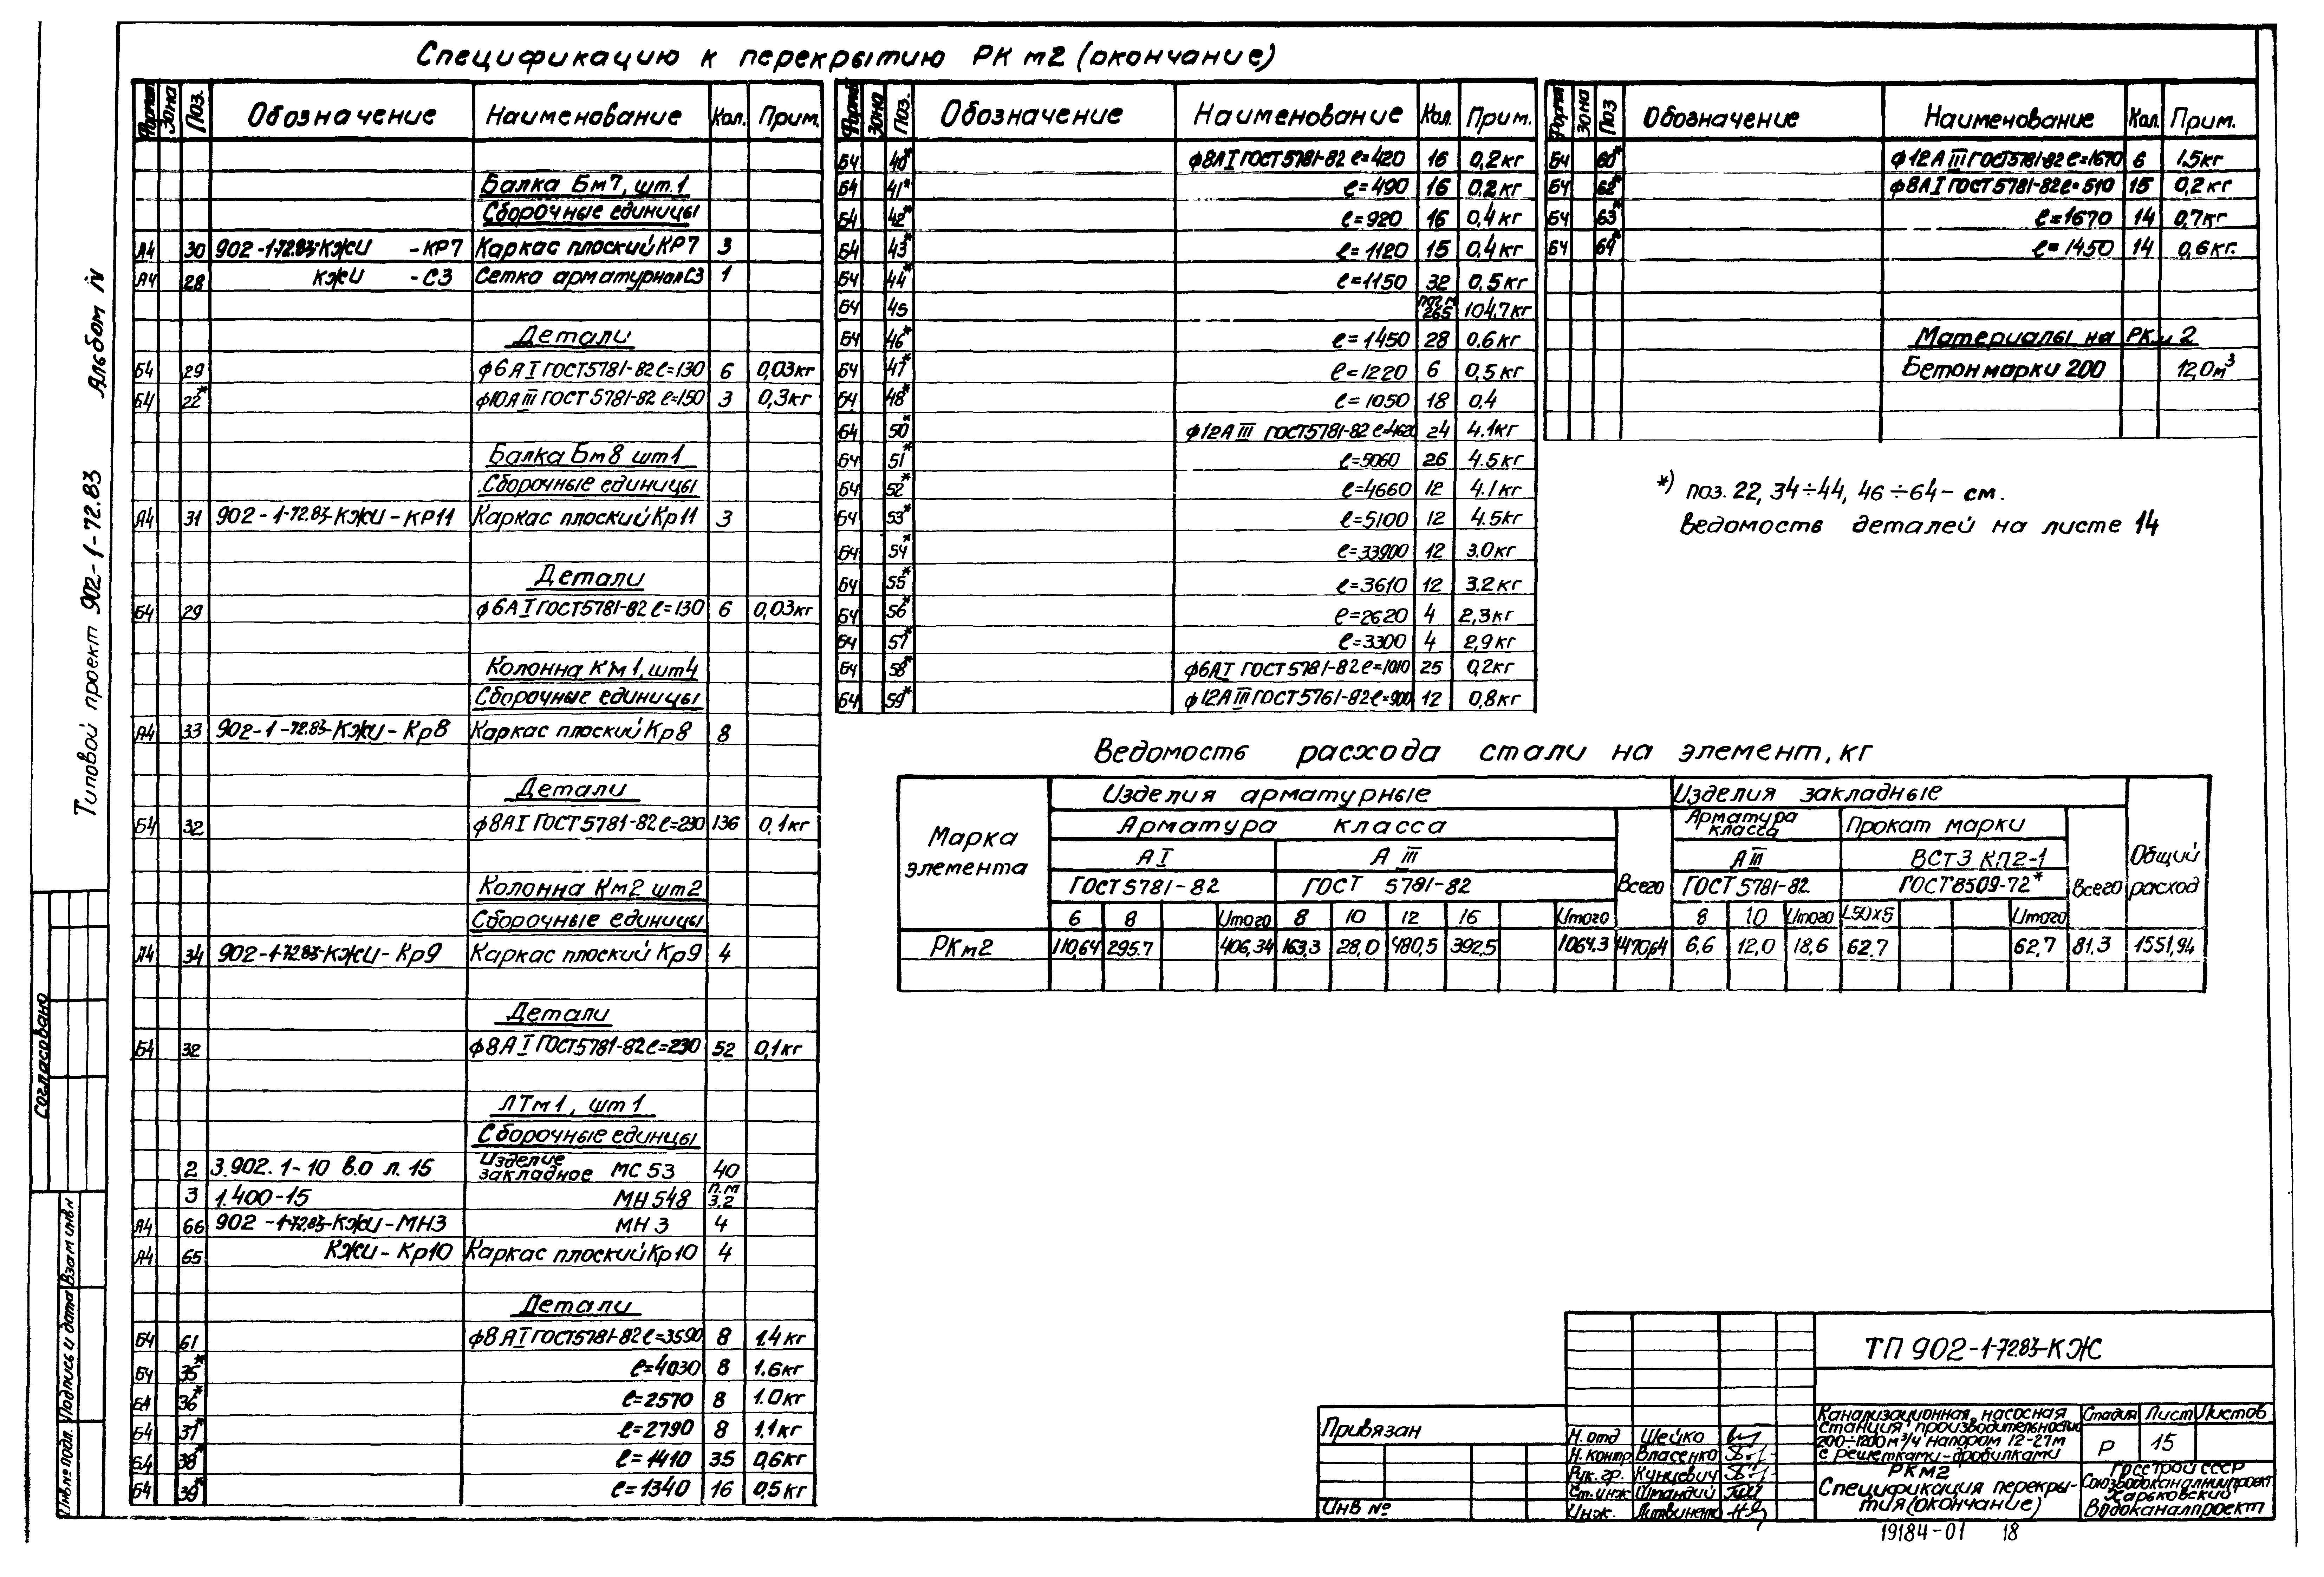 Спецификацию к перекрытию РК м2 (окончание)
Формат Зона Поз. Обозначение Наименование Кол. Прим.
Балка Бм7, шт.1
Сборочные единицы
А4 30 902-1-72.83-КЖИ -КР7 Каркас плоский КР7 3
А4 28 КЖИ -С3 Сетка арматурная С3 1
Детали
Б4 29 ф6 А I ГОСТ 5781-82 ℓ=130 6 0,03кг
Б4 22* ф10А III ГОСТ 5781-82 ℓ=150 3 0,3кг
Балка Бм8 шт1
Сборочные единицы
А4 31 902-1-72.83-КЖИ-КР11 Каркас плоский Кр11 3
Детали
Б4 29 ф6А I ГОСТ5781-82 ℓ=130 6 0,03кг
Колонна Км1, шт4
Сборочные единицы
А4 33 902-1-72.83-КЖИ-Кр8 Каркас плоский Кр8 8
Детали
Б4 32 ф8АI ГОСТ5781-82 ℓ=230 136 0,1кг
Колонна Км2 шт2
Сборочные единицы
А4 34 902-1-72.83-КЖИ-Кр9 Каркас плоский Кр9 4
Детали
Б4 32 ф8А I ГОСТ5781-82 ℓ=230 52 0,1кг
ЛТм1, шт1
Сборочные единцы
2 3.902.1-10 в.0 л.15 Изделие закладное МС 53 40
3 1.400-15 МН 548 п.м 3.2
А4 66 902-1-72.83-КЖИ-МН3 МН 3 4
А4 65 КЖИ-Кр10 Каркас плоский Кр10 4
Детали
Б4 61 ф8 А I ГОСТ5781-82 ℓ=3590 8 1.4кг
Б4 35* ℓ=4030 8 1.6кг
Б4 36* ℓ=2570 8 1.0кг
Б4 37* ℓ=2790 8 1.1кг
Б4 38* ℓ=1410 35 0,6кг
Б4 39* ℓ=1340 16 0,5кг
Формат Зона Поз. Обозначение Наименование Кол. Прим.
Б4 40* ф8АI ГОСТ 5781-82 ℓ=420 16 0,2кг
Б4 41* ℓ=490 16 0,2кг
Б4 42* ℓ=920 16 0,4кг
Б4 43* ℓ=1120 15 0,4кг
Б4 44* ℓ=1150 32 0,5кг
Б4 45 пог.м 265 104,7кг
Б4 46* ℓ=1450 28 0,6кг
Б4 47* ℓ=1220 6 0,5кг
Б4 48* ℓ=1050 18 0,4
Б4 50* ф12А III ГОСТ5781-82 ℓ=4620 24 4.1кг
Б4 51* ℓ=5060 26 4.5кг
Б4 52* ℓ=4660 12 4.1кг
Б4 53* ℓ=5100 12 4.5кг
Б4 54* ℓ=33900 12 3.0кг
Б4 55* ℓ=3610 12 3.2кг
Б4 56* ℓ=2620 4 2,3кг
Б4 57* ℓ=3300 4 2,9кг
Б4 58* ф6АI ГОСТ 5781-82 ℓ=1010 25 0,2кг
Б4 59* ф12А III ГОСТ 5761-82 ℓ=900 12 0,8кг
Форма Зона Поз Обозначение Наименование Кол. Прим.
Б4 60* ф12А III ГОСТ5781-82 ℓ=1670 6 1.5кг
Б4 62* ф8А I ГОСТ 5781-82 ℓ=510 15 0,2кг
Б4 63* ℓ=1670 14 0,7кг
Б4 64* ℓ=1450 14 0,6кг.
Материалы на РКм 2
Бетон марки 200 12,0м³
*) поз. 22, 34÷44, 46÷64- см.
ведомость деталей на листе 14
Ведомость расхода стали на элемент, кг
Марка элемента
Изделия арматурные Изделия закладные Общий расход
Арматура класса Всего Арматура класса Прокат марки Всего
А I А III А III ВСт3 КП2-1
ГОСТ5781-82 ГОСТ 5781-82 ГОСТ 5781-82 ГОСТ8509-72*
6 8 Итого 8 10 12 16 Итого 8 10 Итого L50х5 Итого
РКм2 110,64 295.7 406,34 163,3 28,0 480,5 392,5 1064.3 1470,64 6,6 12,0 18,6 62.7 62,7 81.3 1551,94
Типовой проект 902-1-72.83 Альбом IV
Согласовано
Инв.№ подл. Подпись и дата Взам инв.н
ТП 902-1-72.83-КЖ
Привязан
Инв №
Н.отд Шейко
Н.контр Власенко
Рук. гр. Кунцевич
Ст.инж Штандий
Инж. Литвиненко
Канализационная насосная
станция производительностью
200÷1200м³/ч напором 12-27м
с решетками-дробилками
РКм2
Спецификация перекры-
тия (окончание)
Стадия Лист Листов
Р 15
Госстрой СССР
Союзводоканалниипроект
Харьковский
Водоканалпроект
19184-01 18